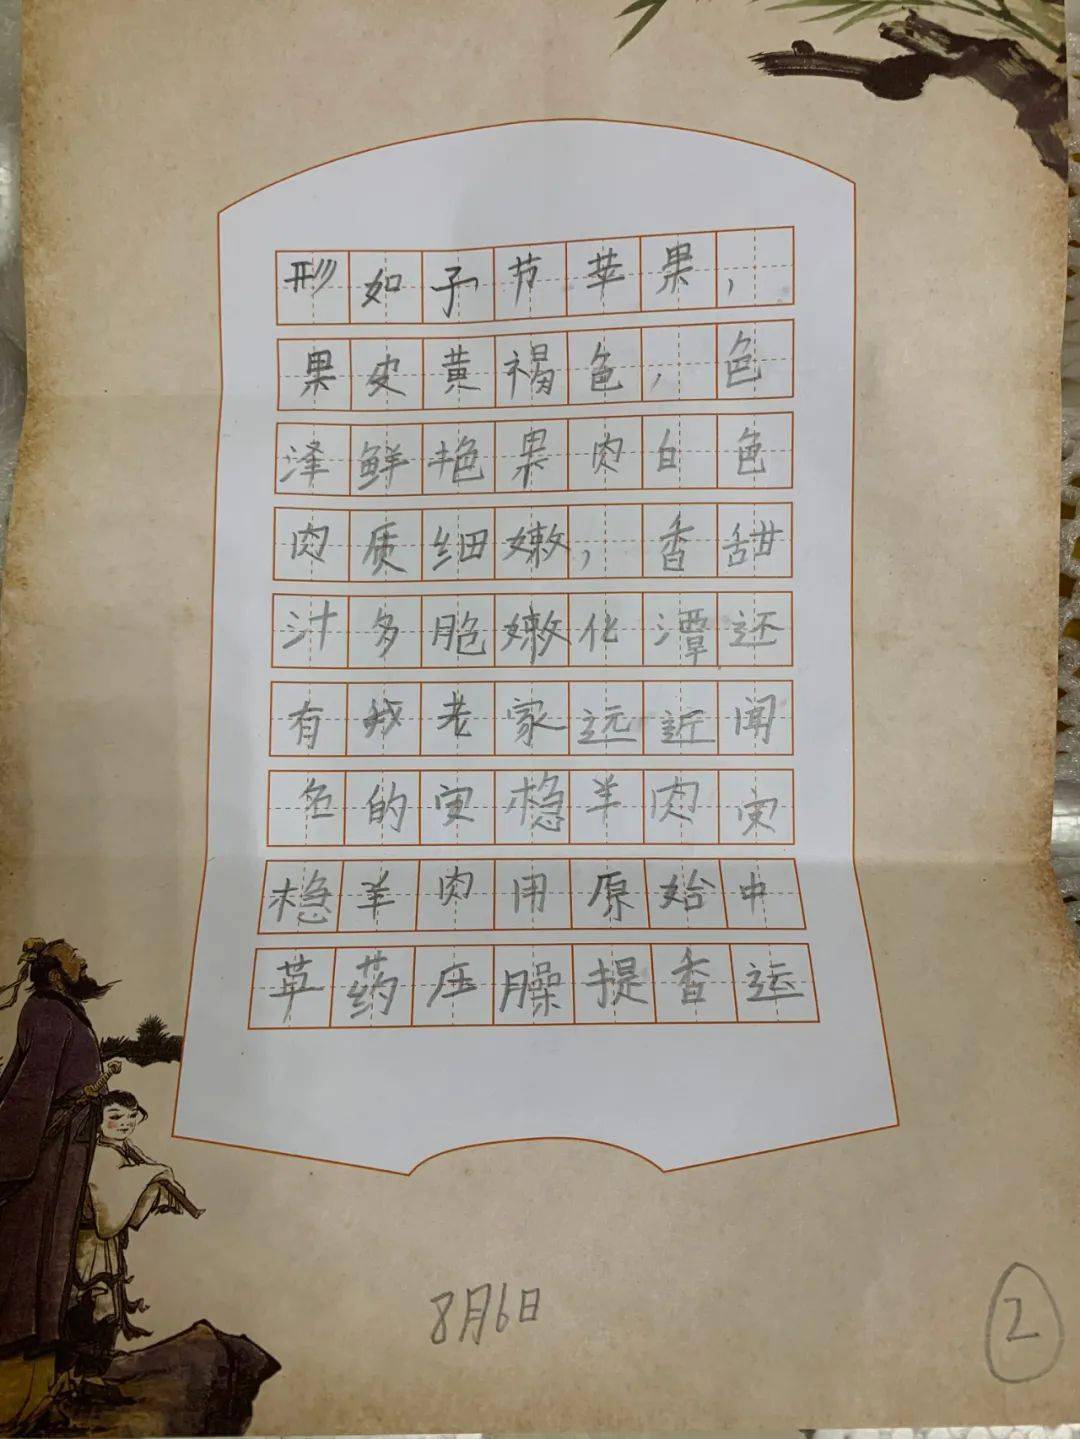 形如子节苹果，
果皮黄褐色，色
泽鲜艳果肉白色
肉质细嫩，香甜
汁多脆嫩化潭还
有我老家远近闻
名的宝稳羊肉宝
稳羊肉用原始中
草药压臊提香运
8月6日
2